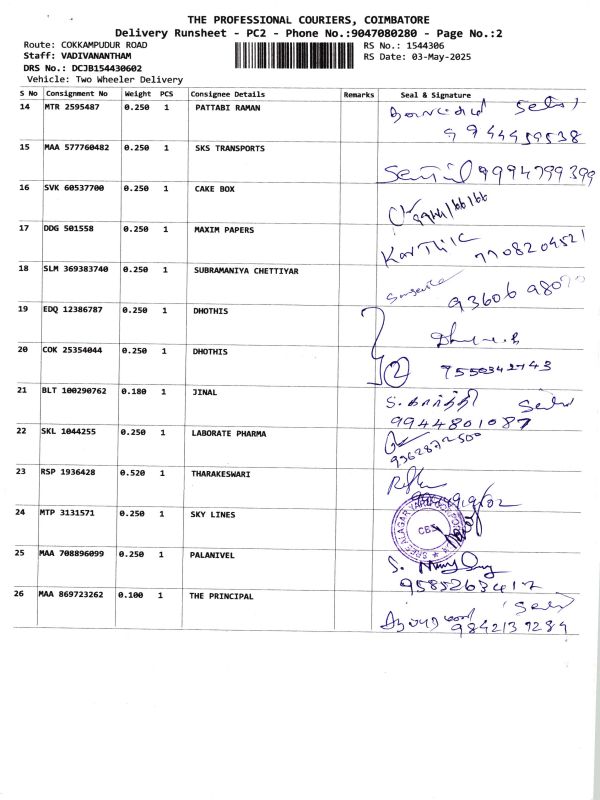 THE PROFESSIONAL COURIERS, COIMBATORE
Delivery Runsheet - PC2 - Phone No.:9047080280 - Page No.:2
Route: COKKAMPUDUR ROAD
RS No.: 1544306
Staff: VADIVANANTHAM
RS Date: 03-May-2025
DRS No.: DCJB154430602
Vehicle: Two Wheeler Delivery
S No Consignment No Weight PCS Consignee Details Remarks Seal & Signature
14 MTR 2595487 0.250 1 PATTABI RAMAN
9944459538
15 MAA 577760482 0.250 1 SKS TRANSPORTS
Senthil 9994799399
16 SVK 60537700 0.250 1 CAKE BOX
17 DDG 501558 0.250 1 MAXIM PAPERS
Karthic 7708204521
18 SLM 369383740 0.250 1 SUBRAMANIYA CHETTIYAR
19 EDQ 12386787 0.250 1 DHOTHIS
20 COK 25354044 0.250 1 DHOTHIS
2 9550342743
21 BLT 100290762 0.180 1 JINAL
S. கார்த்தி
9944801087
22 SKL 1044255 0.250 1 LABORATE PHARMA
9362872500
23 RSP 1936428 0.520 1 THARAKESWARI
24 MTP 3131571 0.250 1 SKY LINES
CBE
25 MAA 708896099 0.250 1 PALANIVEL
9585263417
26 MAA 869723262 0.100 1 THE PRINCIPAL
9842137284